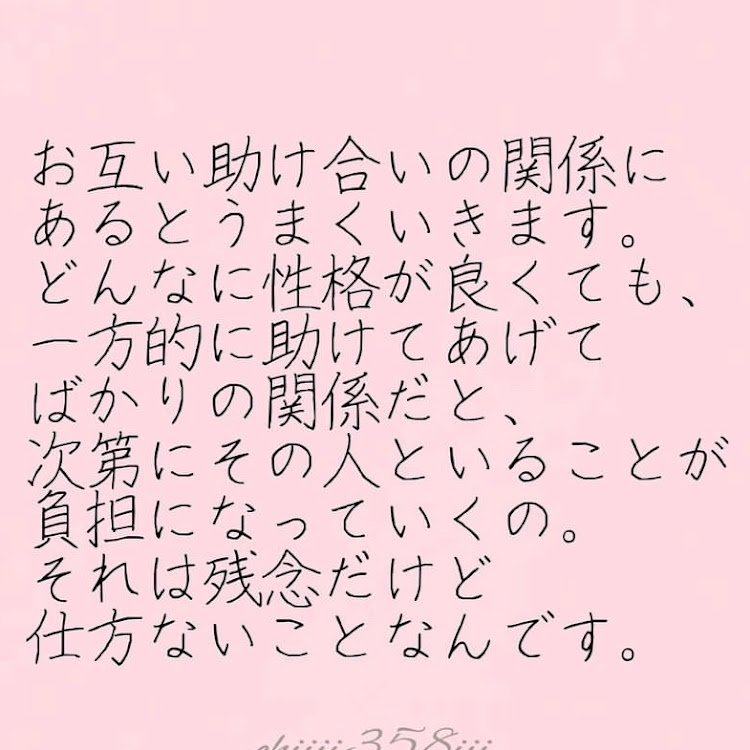 お互い助け合いの関係に
あるとうまくいきます。
どんなに性格が良くても、
一方的に助けてあげて
ばかりの関係だと、
次第にその人といることが
負担になっていくの。
それは残念だけど
仕方ないことなんです。